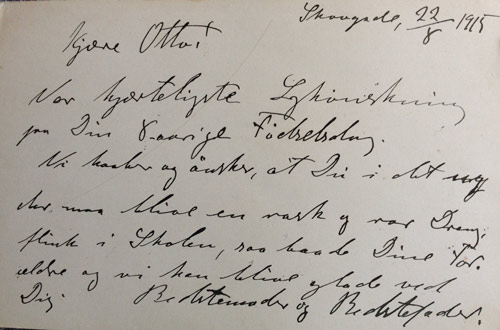 Skovgade, 22/8 1915
Kjære Otto!
Vor hjærteligste Lykønskning
paa Din 8 aarige Födselsdag.
Vi haaber og önsker, at Du i det nye
Aar maa blive en rask og rar Dreng,
flink i Skolen, saa baade Dine For-
ældre og vi kan blive glade ved
Dig. Bedstemoder og Bedstefader.